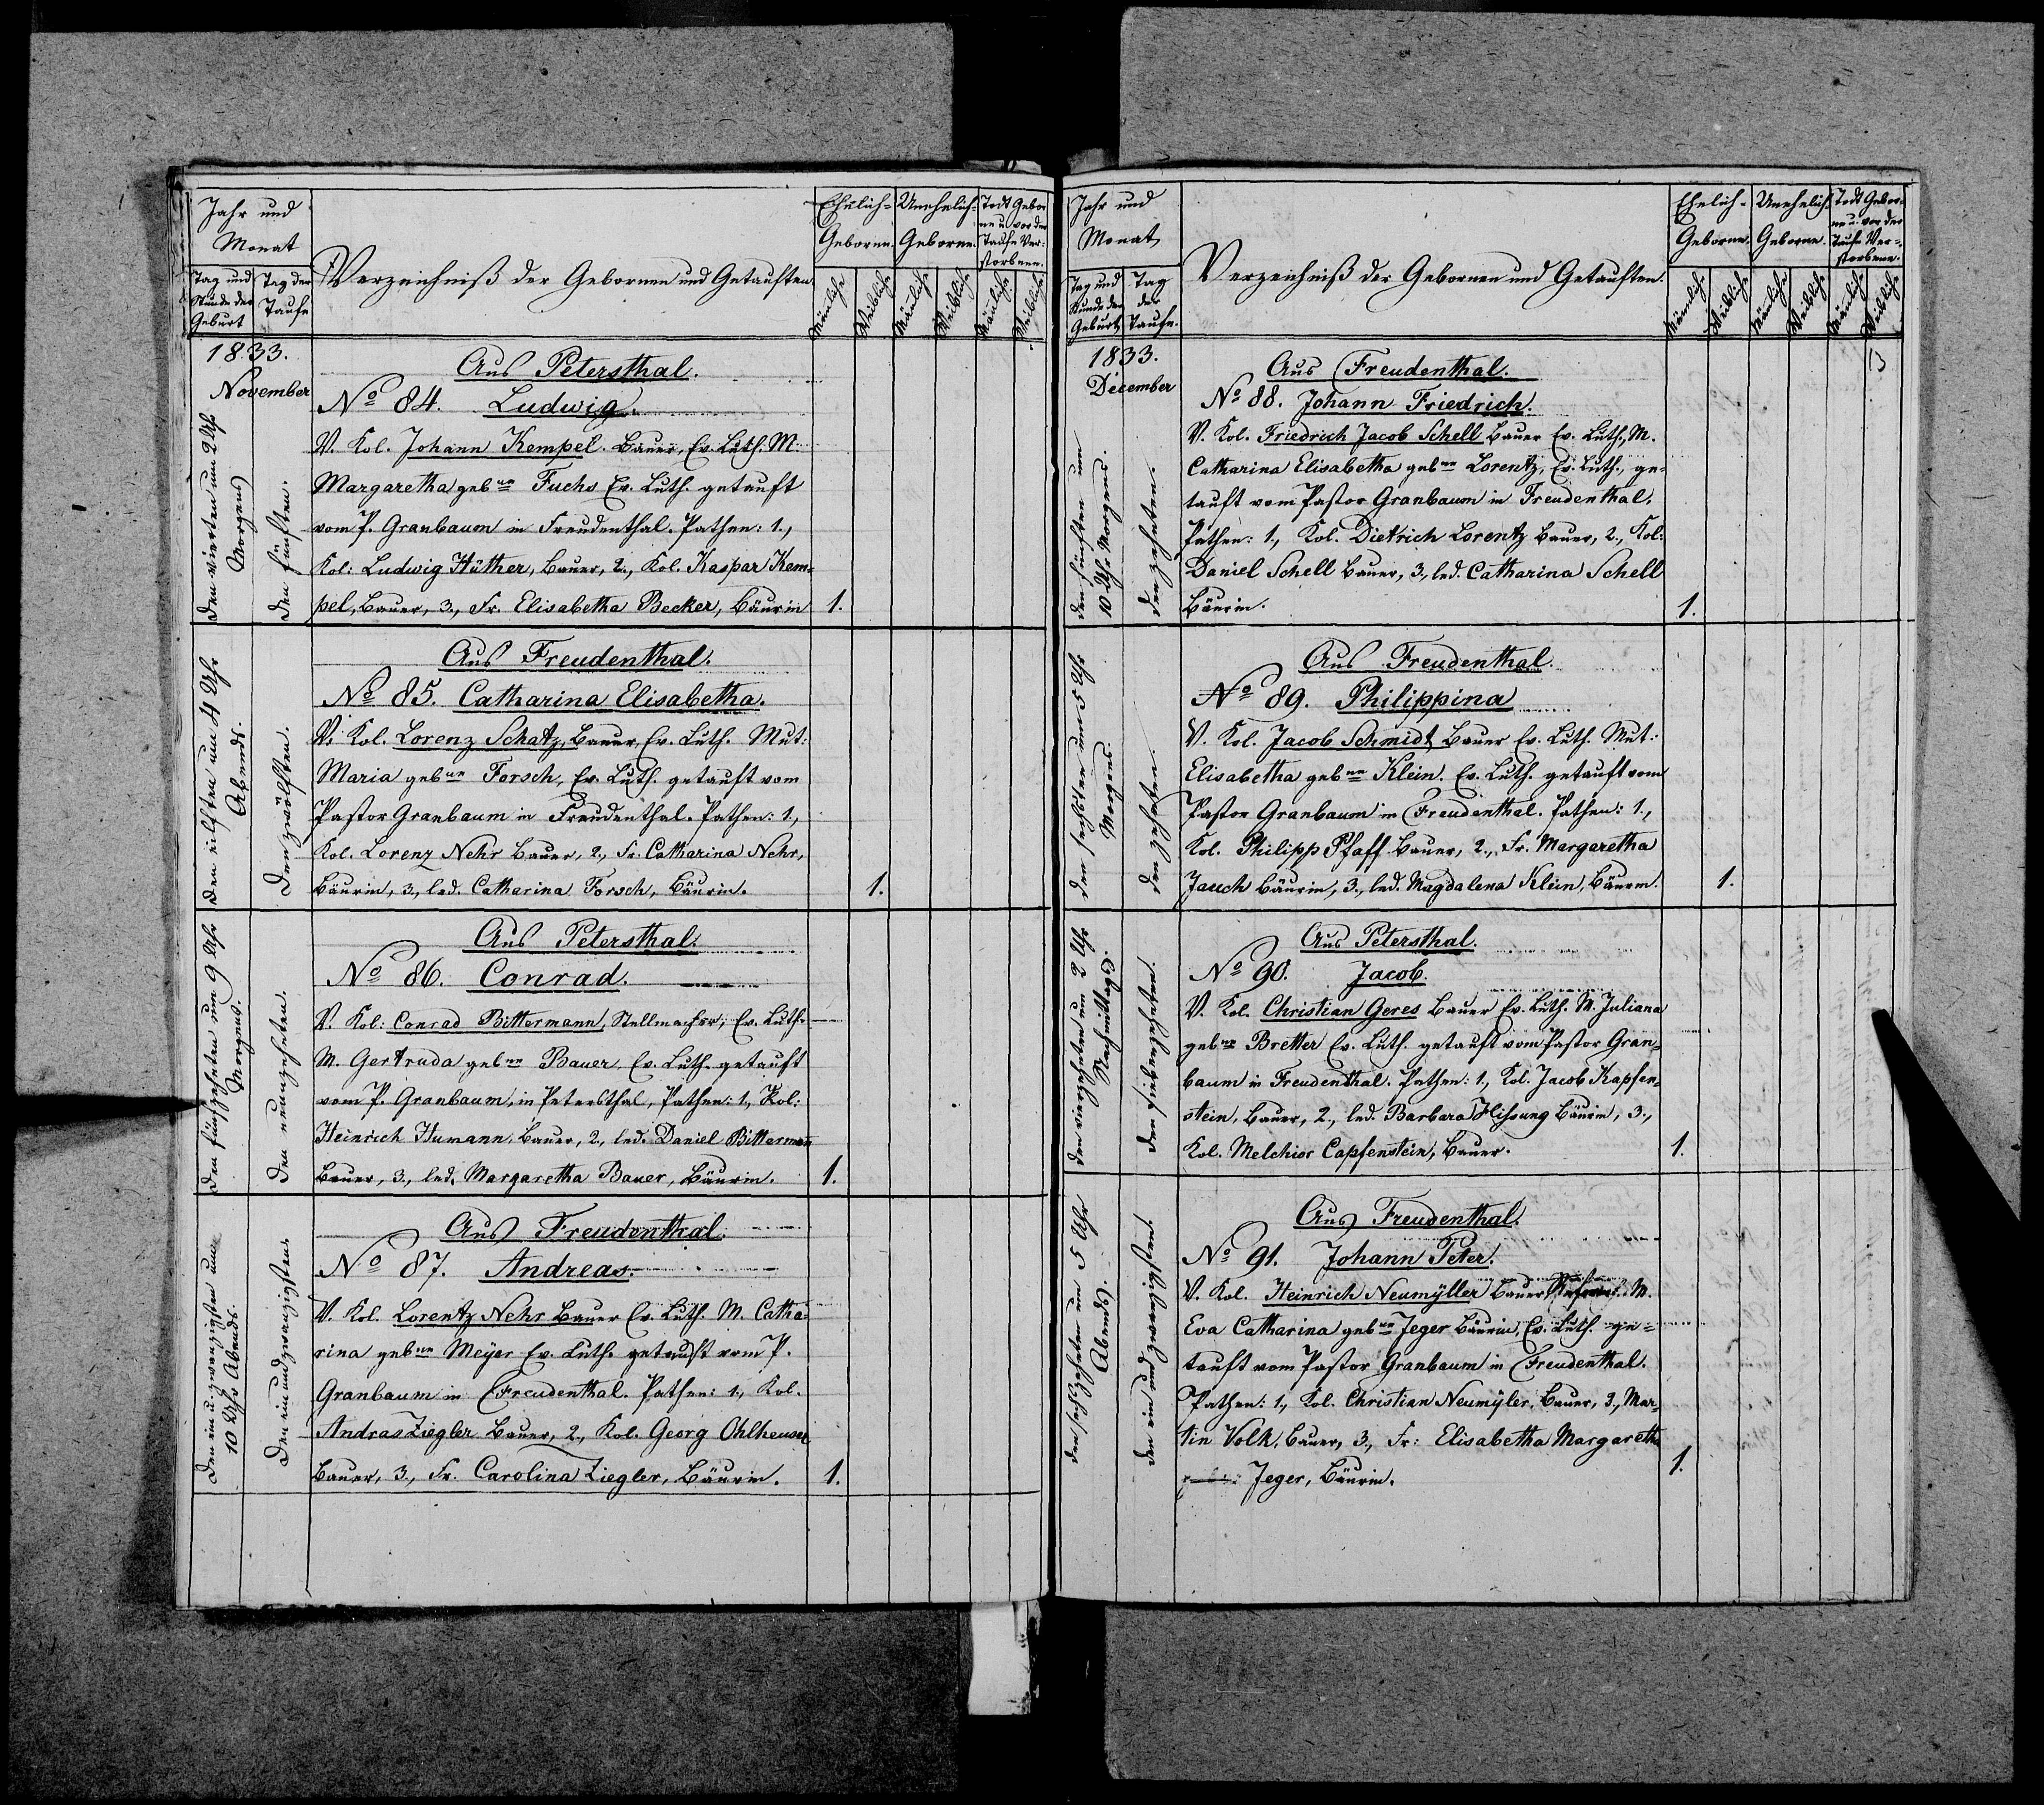 Jahr und
Monat
Tag und
Stunde der
Geburt
Tag der
Taufe
Verzeichniß der Gebornen und Getauften.
Ehelich-
Geborne.
Unehelich-
Geborne.
Todt Gebor
ne u. vor der
Taufe Ver-
storbene.
Männliche
Weibliche
Männliche
Weibliche
Männliche
Weibliche
1833.
November
Den vierten um 2 Uhr
Morgens
Den fünften.
Aus Petersthal.
No 84. Ludwig.
V. Kol. Johann Kempel. Bauer, Ev. Luth. M.
Margaretha gebne Fuchs Ev. Luth. getauft
vom P. Granbaum in Freudenthal. Pathen: 1.,
Kol: Ludwig Hüther, Bauer, 2., Kol. Kaspar Kem-
pel, Bauer, 3., Fr. Elisabetha Becker, Bäurin
1.
Den eilften um 4 Uhr
Abends.
Den zwölften.
Aus Freudenthal.
No 85. Catharina Elisabetha.
V. Kol. Lorenz Schatz, Bauer, Ev. Luth. Mut:
Maria gebne Forsch, Ev. Luth. getauft vom
Pastor Granbaum in Freudenthal. Pathen: 1.,
Kol. Lorenz Nehr Bauer, 2., Fr. Catharina Nehr,
Bäurin, 3., led. Catharina Forsch, Bäurin.
1.
Den fünfzehnten um 9 Uhr
Morgens.
Den neunzehnten.
Aus Petersthal.
No 86. Conrad.
V. Kol: Conrad Bittermann, Stellmacher, Ev. Luth.
M. Gertruda gebne Bauer, Ev. Luth. getauft
vom P. Granbaum, in Petersthal, Pathen: 1., Kol:
Heinrich Humann, Bauer, 2., led. Daniel Bittermann
Bauer, 3., led. Margaretha Bauer, Bäurin.
1.
Den ein u. zwanzigsten um
10 Uhr Abends.
Den ein und zwanzigsten.
Aus Freudenthal.
No 87. Andreas.
V. Kol. Lorentz Nehr Bauer Ev. Luth. M. Catha-
rina gebne Meyer Ev. Luth. getauft vom P.
Granbaum in Freudenthal. Pathen: 1., Kol.
Andras Ziegler Bauer, 2., Kol. Georg Ohlheuser
Bauer, 3., Fr. Carolina Ziegler, Bäurin.
1.
Jahr und
Monat
Tag und
Stunde der
Geburt
Tag
der
Taufe.
Verzeichniß der Gebornen und Getauften.
Ehelich-
Geborne.
Unehelich
Geborne.
Todt Gebor-
ne u. vor der
Taufe Ver-
storbene.
Männlich
Weiblich
Männlich
Weiblich
Männlich
Weiblich
1833.
December
Den fünften um
10 Uhr Morgens.
Den zehnten.
Aus Freudenthal.
No 88. Johann Friedrich.
V. Kol. Friedrich Jacob Schell Bauer Ev. Luth., M.
Catharina Elisabetha gebne Lorentz, Ev. Luth., ge-
tauft vom Pastor Granbaum in Freudenthal.
Pathen: 1., Kol. Dietrich Lorentz Bauer, 2., Kol:
Daniel Schell Bauer, 3., led. Catharina Schell
Bäurin.
1.
Den sechsten um 5 Uhr
Morgens.
Den zehnten
Aus Freudenthal.
No 89. Philippina
V. Kol. Jacob Schmidt Bauer Ev. Luth. Mut:
Elisabetha gebne Klein. Ev. Luth. getauft vom
Pastor Granbaum in Freudenthal. Pathen: 1.,
Kol. Philipp Pfaff Bauer, 2., Fr. Margaretha
Jauch Bäurin, 3., led. Magdalena Klein, Bäurin.
1.
Den vierzehnten um 2 Uhr
Nachmittags.
Den siebenzehnten.
Aus Petersthal.
No 90. Jacob.
V. Kol. Christian Geres Bauer Ev. Luth. M. Juliana
gebne Bretter Ev. Luth. getauft vom Pastor Gran-
baum in Freudenthal. Pathen: 1., Kol. Jacob Kapfen-
stein, Bauer, 2., led. Barbara Bäurin, 3.,
Kol. Melchior Capfenstein, Bauer.
1.
Den sechszehnten um 5 Uhr
Abends.
Den ein und zwanzigsten.
Aus Freudenthal.
No 91. Johann Peter.
V. Kol. Heinrich Neumÿller Bauer M.
Eva Catharina gebne Jeger Bäurin, Ev. Luth. ge-
tauft vom Pastor Granbaum in Freudenthal.
Pathen: 1., Kol. Christian Neumÿler, Bauer, 2., Mar-
tin Volk, Bauer, 3., Fr: Elisabetha Margaretha
Jeger, Bäurin.
1.